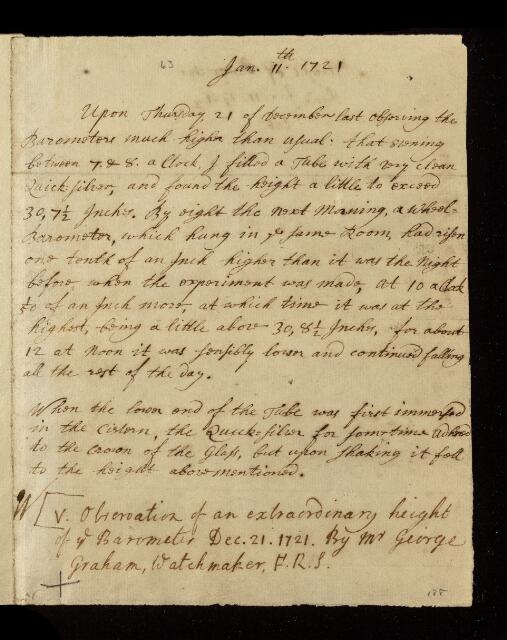 63
Jan. 11.th 1721
Upon Thursday 21 of December last observing the
Barometers much higher than usual: that evening
between 7 & 8. a Clock, I filled a Tube with very clean
Quick-silver, and found the height a little to exceed
30,7½ Inches. By eight the next Morning, a wheel-
Barometer, which hung in ye same Room, had risen
one tenth of an Inch higher than it was the Night
before, when the experiment was made, at 10 a Clock
of of an Inch more, at which time it was at the
highest, being a little above 30,8½ Inches, for about
12 at Noon it was sensibly lower and continued falling
all the rest of the day.
When the lower end of the Tube was first immersed
in the cistern, the Quick-silver for sometime adhered
to the Crown of the Glass, but upon shaking it fell
to the height above mentioned.
V. Observation of an extraordinary height
of ye Barometer Dec. 21. 1721. By Mr George
Graham, Watchmaker, F.R.S.